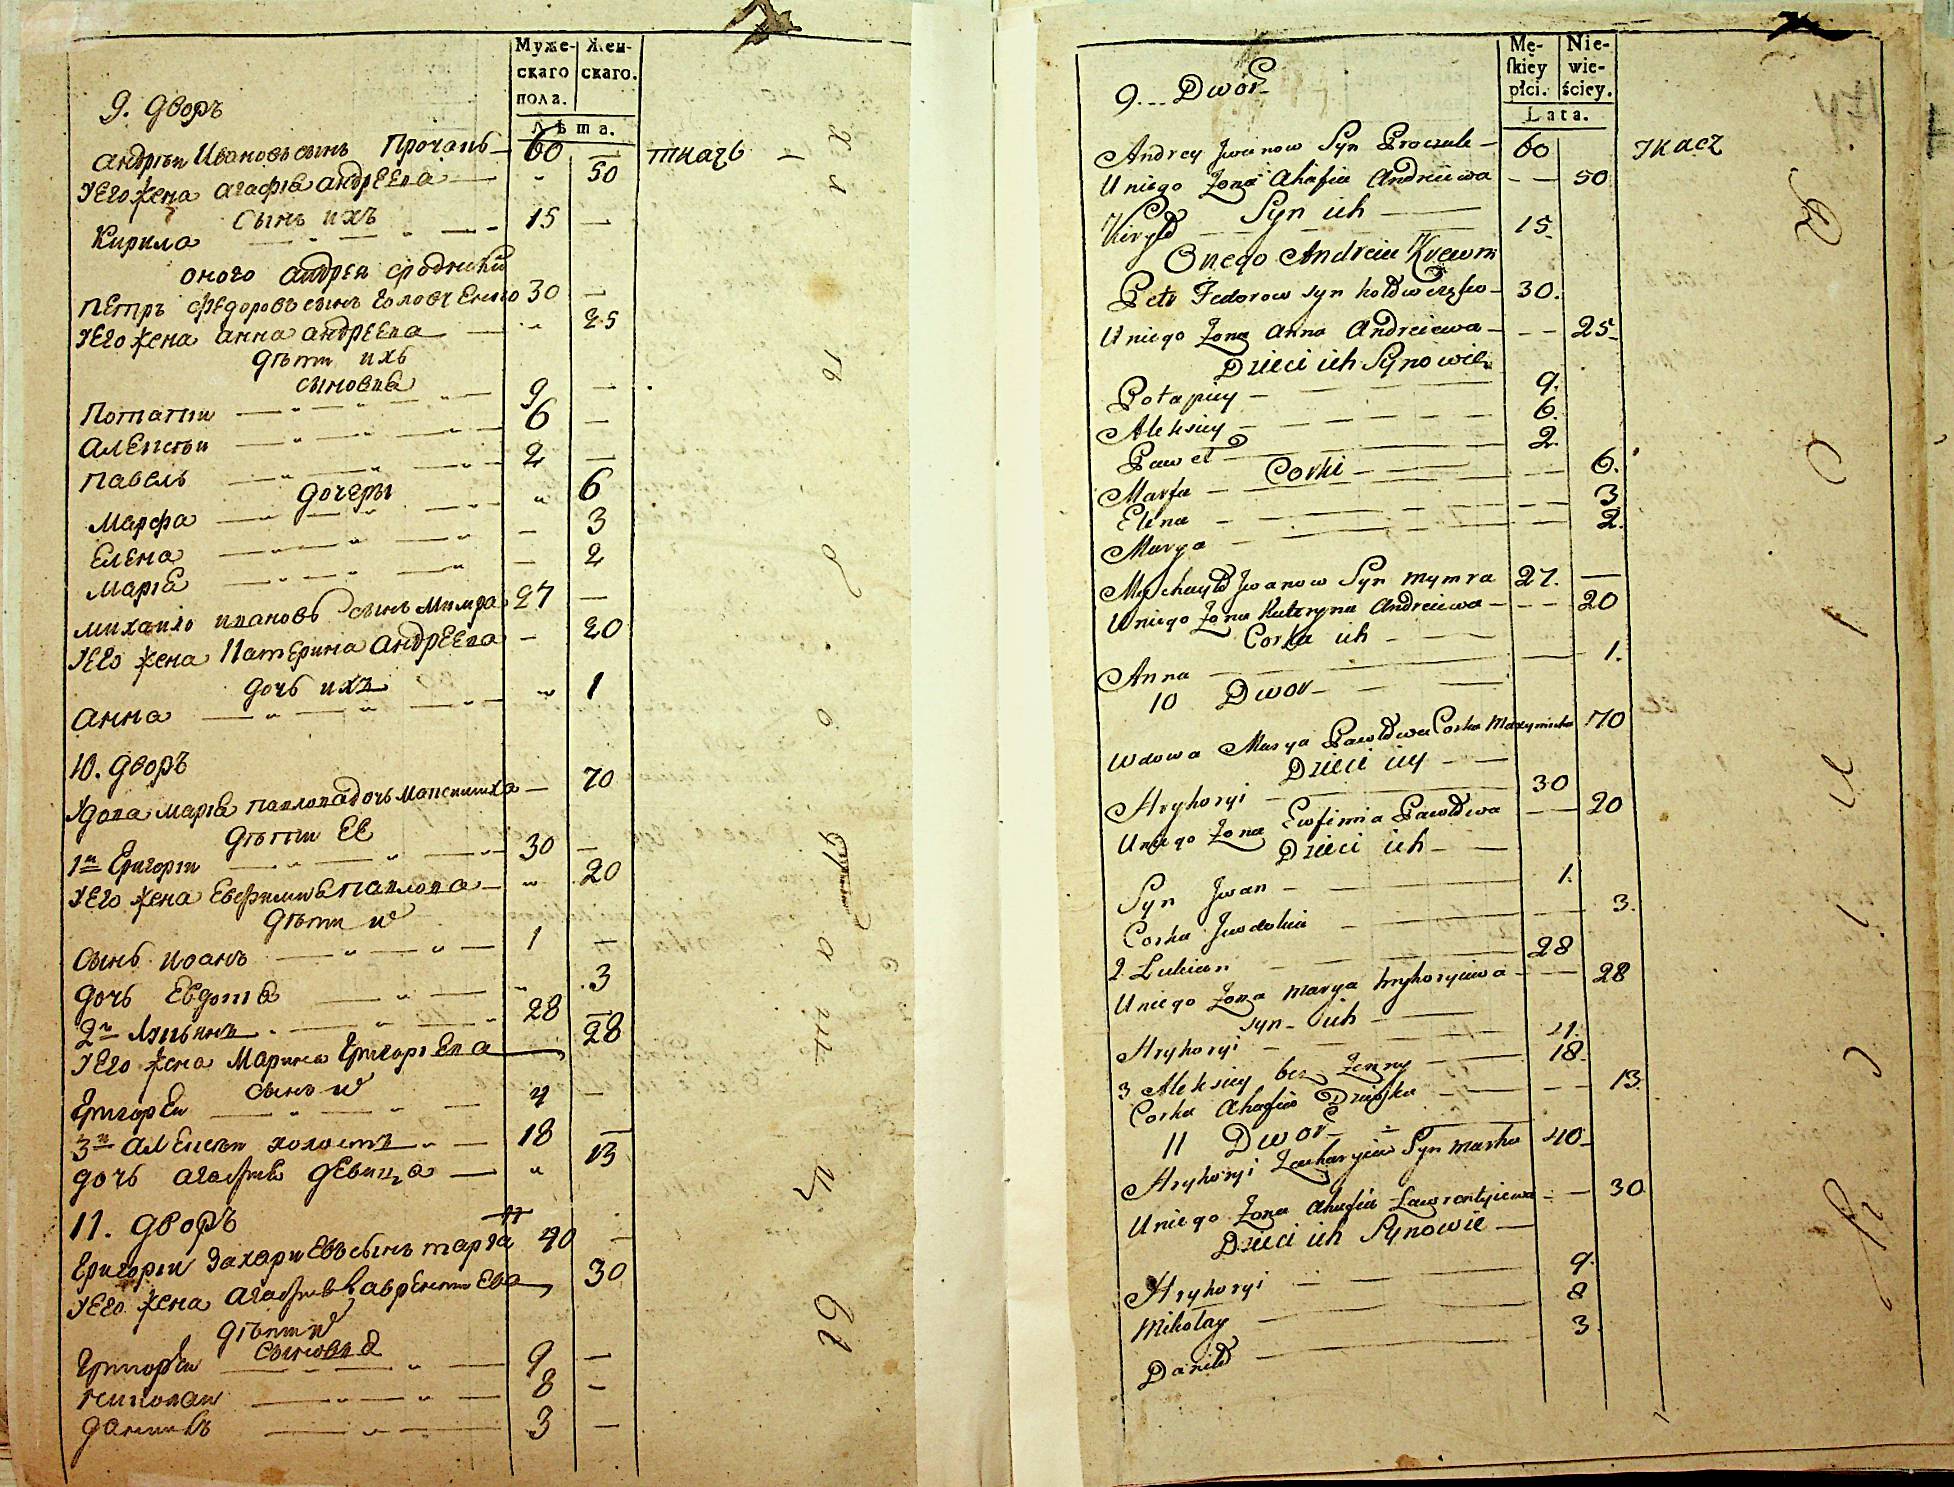 Муже-
скаго
пола.
Жен-
скаго.
Лѣта.
9. дворъ
андрѣи Ивановъ сынъ Прочапь — 60 — ткачь —
Его жена агафiѧ андрЕЕва — " 50
сынъ ихъ
Кирила 15 —
оного андреѧ сродники
ПЕтръ фЕдоровъ сынъ 30 —
Его жена анна андрЕЕва — " 25
дѣти ихъ
сыновѧ
Потапiи 9 —
алЕксѣи 6 —
павелъ 2 —
дочеры
Марфа " 6
Елена — 3
Марiѧ — 2
михаило ивановъ сынъ Мимра 27 —
Его жена КатЕрина андрЕЕва — 20
дочь ихъ
анна " 1
10. дворъ
Удова марiѧ павлова дочь Максимиха — 70
дѣти ЕЕ
1й Григорiи 30 —
Его жена Евфимиѧ павлова — " 20
дѣти и
сынъ иоанъ 1 —
дочь Евдотiѧ " 3
2й Лукѣѧнъ 28 —
Его жена Марина ГригорiЕва 28
сынъ и
ГригорЕи 4 —
3й алЕксѣи холостъ 18 —
дочь агафиѧ дЕвица — " 13
11. дворъ
Григорiи ЗахариЕвъ сынъ марха 40 —
Его жена агафиѧ лаврентиЕва 30
дѣти и
сыновѧ
ГригорЕи 9 —
николаи 8 —
данилъ 3 —
Mę-
skiey
płci.
Nie-
wie-
ściey.
Lata.
9... Dwor
Andrey Jwanow Syn — 60 TKACZ
U niego Żona Ahafia Andreiewa — — 50
Syn ich
Kiryło 15.
Onego Andreia Krewni
Petr Fedorow syn — 30.
U niego Żona Anna Andreiewa — — 25
Dzieci ich Synowie
Potapiy — 9.
Aleksiey 6.
Paweł 2.
Corki
Marfa — 6.
Elena — 3
Marya — 2.
Mychayło Jwanow Syn Mymra 27. —
U niego Żona Kateryna Andreiewa — — 20
Corka ich
Anna 1.
10 Dwor
Wdowa Marya Pawłowa Corka Maxymicha 70
Dzieci iey
Hryhoryi 30
U niego Żona Ewfimia Pawłowa — 20
Dzieci ich
Syn Jwan — 1.
Corka Jwdokia — 3.
2. Lukian 28
U niego Żona Marya Hryhoryiewa — — 28
syn ich
Hryhoryi 4.
3 Aleksiey bez Żenny 18.
Corka Ahafia Dziewka — 13
11 Dwor
Hryhoryi Zacharyiew Syn Marha 40
U niego Żona Ahafia Lawrentyiewa — 30
Dzieci ich Synowie —
Hryhoryi 9.
Mikołay 8
Daniło 3.